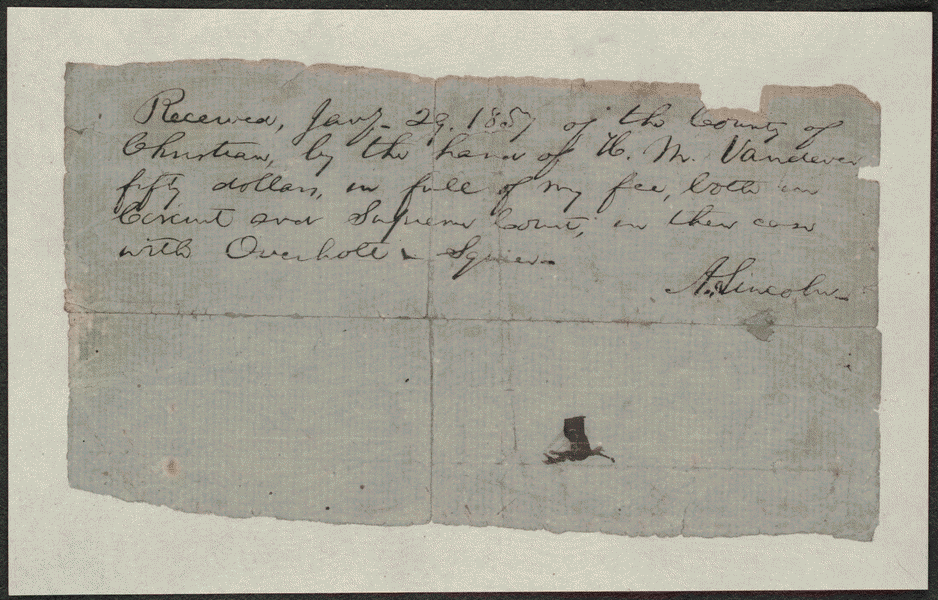 Received, Jany. 29. 1857 of the County of
Christian, by the hand of H. M. Vandever
fifty dollars, in full of my fee, both in
Circuit and Supreme Court, in their case
with Overholt & Squier—
A. Lincoln—